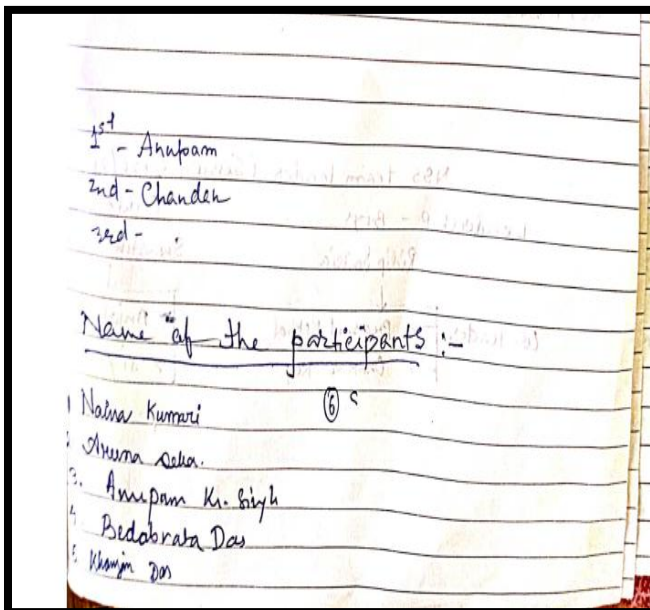 1st - Anupam
2nd - Chandan
3rd -
Name of the participants :-
1 Naina Kumari ⑥
2 Aruna Deka.
3. Anupam Kr. Singh
4 Bedabrata Das
5 Khanjan Das